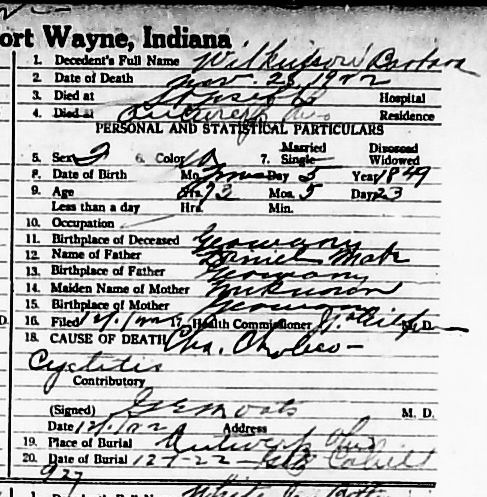 ort Wayne, Indiana
1. Decedent's Full Name Wilkinson Barbara
2. Date of Death Nov. 28, 1922
3. Died at St Joseph Hospital
4. Died at Antwerp Ohio Residence
PERSONAL AND STATISTICAL PARTICULARS
5. Sex F 6. Color W 7. Married Single Divorced Widowed
8. Date of Birth Mo. Day 5 Year 1849
9. Age Yrs. 73 Mos. 5 Days 23
Less than a day Hrs. Min.
10. Occupation
11. Birthplace of Deceased Germany
12. Name of Father Daniel
13. Birthplace of Father Germany
14. Maiden Name of Mother Unknown
15. Birthplace of Mother Germany
16. Filed 17. Health Commissioner M. D.
18. CAUSE OF DEATH Cho. Choleo-
Cyctitis
Contributory
(Signed) G E Moats M. D.
Date 12/1/22 Address
19. Place of Burial Antwerp Ohio
20. Date of Burial 12-1-22
927